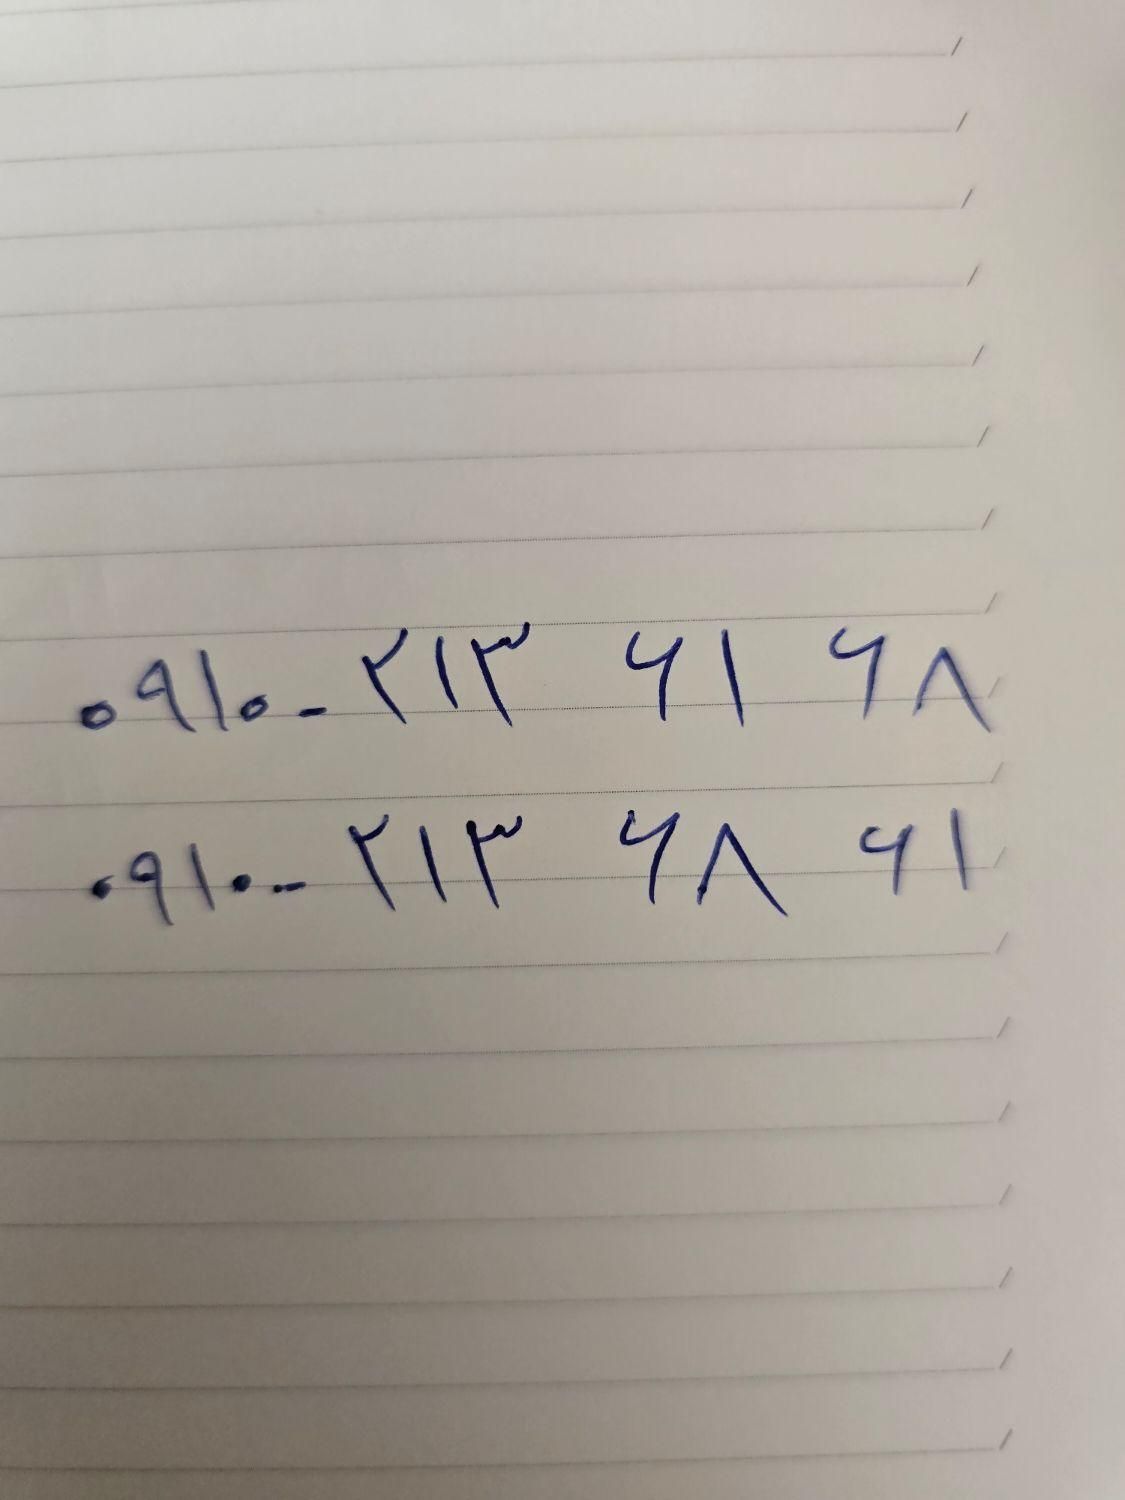 ۰۹۱۰-۲۱۳ ۶۱ ۶۸
۰۹۱۰-۲۱۳ ۶۸ ۶۱